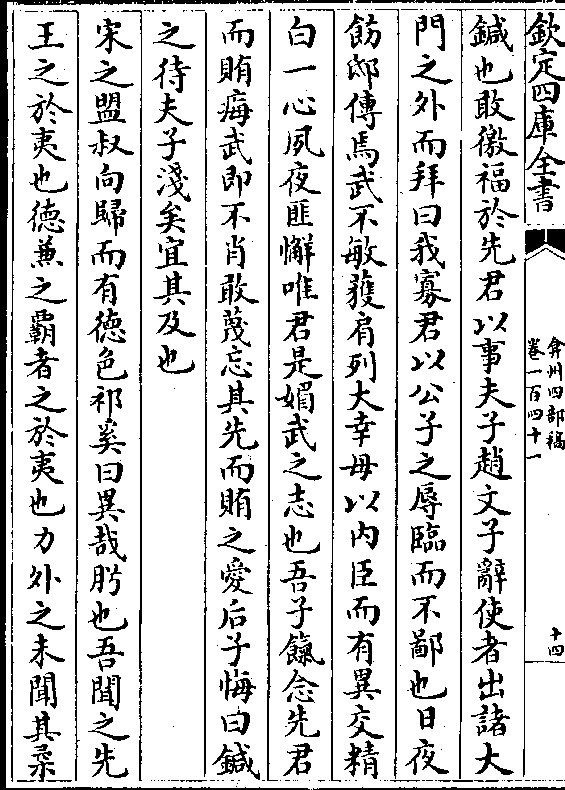 欽定四庫全書
弇州四部稿
卷一百四十一
十四
鍼也敢徼福於先君以事夫子趙文子辭使者出諸大
門之外而拜曰我寡君以公子之辱臨而不鄙也日夜
飭邸傳焉武不敏獲肩列大幸毋以内臣而有異交精
白一心夙夜匪懈唯君是媚武之志也吾子餼念先君
而賄痗武即不肖敢蔑忘其先而賄之愛后子悔曰鍼
之待夫子淺矣宜其及也
宋之盟叔向歸而有德色祁奚曰異哉肹也吾聞之先
王之於夷也德兼之霸者之於夷也力外之未聞其桒